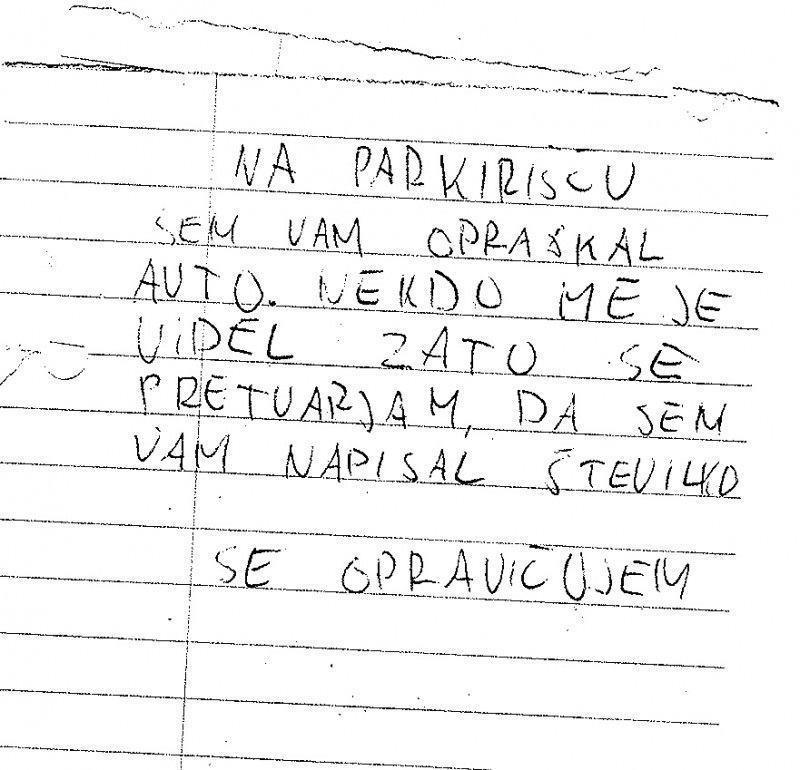 NA PARKIRIŠČU
SEM VAM OPRASKAL
AUTO. NEKDO ME JE
VIDEL ZATO SE
PRETVARJAM, DA SEM
VAM NAPISAL ŠTEVILKO
SE OPRAVIČUJEM